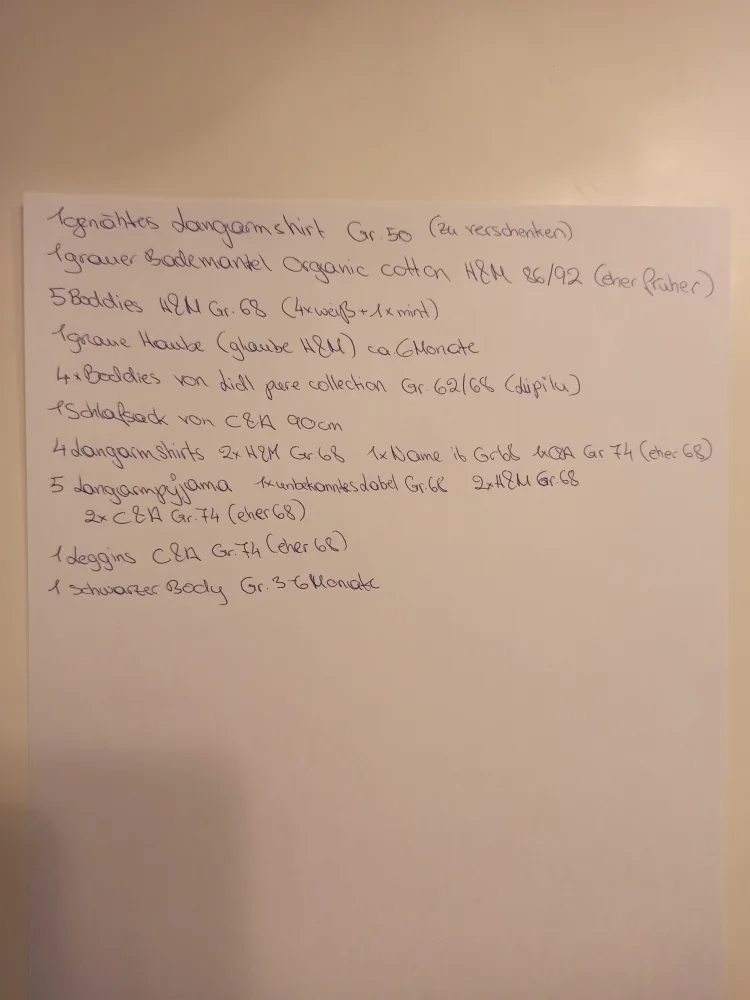 1 genähtes Langarmshirt Gr. 50 (zu verschenken)
1 grauer Bademantel Organic cotton H&M 86/92 (eher früher)
5 Boddies H&M Gr. 68 (4x weiß + 1x mint)
1 graue Haube (glaube H&M) ca 6 Monate
4x Boddies von Lidl pure collection Gr. 62/68 (Lupilu)
1 Schlafsack von C&A 90cm
4 Langarmshirts 2x H&M Gr. 68 1x Name it Gr 68 1x C&A Gr 74 (eher 68)
5 Langarmpyjama 1x unbekanntes Label Gr. 68 2x H&M Gr. 68
2x C&A Gr. 74 (eher 68)
1 Leggins C&A Gr. 74 (eher 68)
1 schwarzer Body Gr. 3-6 Monate